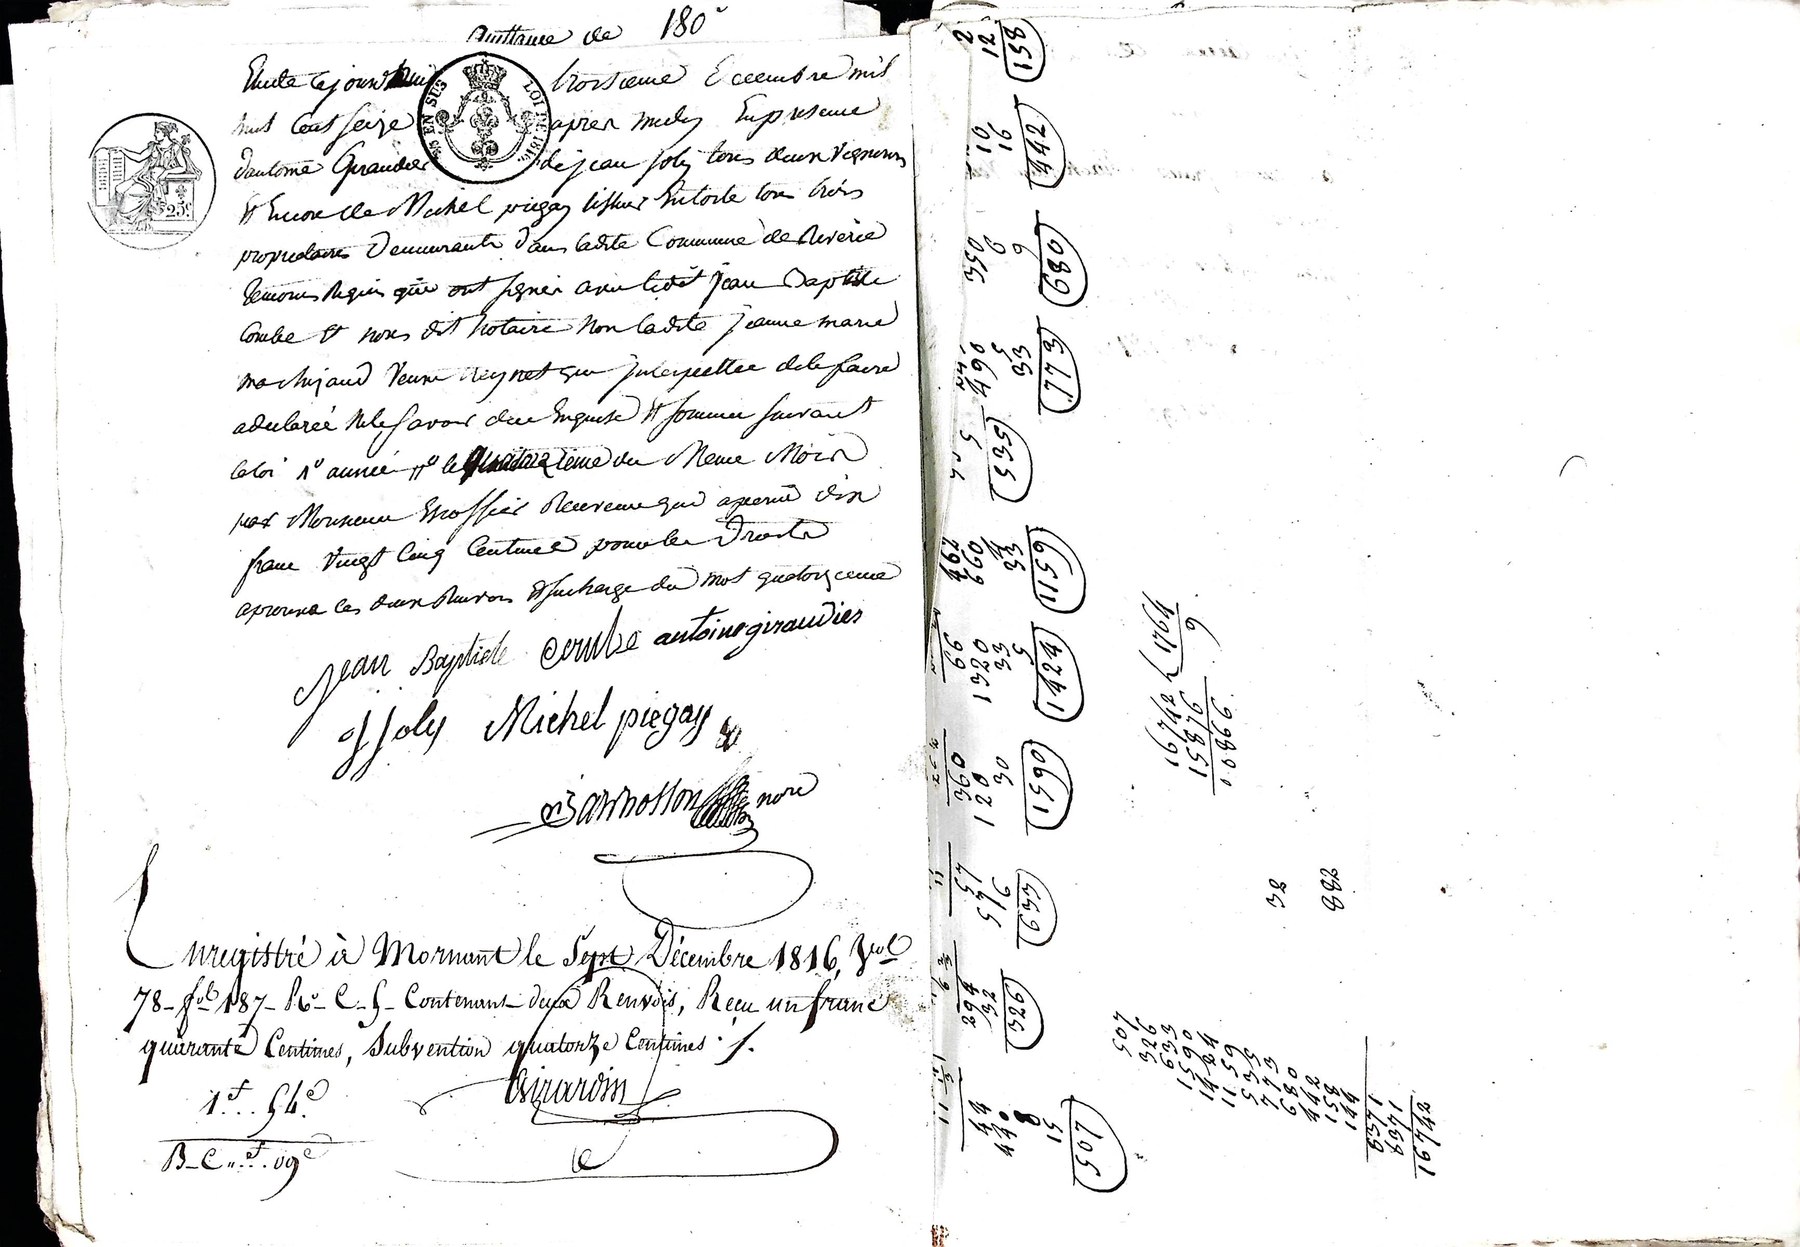 quittance de 180
Etude ce jourd'hui troisieme Decembre mil
huit Cent Seize apres midy En presence
d'antoine Giraudier de jean joly tous deux vignerons
et Encore de Michel piegay tissier En toile tous trois
propriétaires Demeurants dans ladite Commune de Riverie
temoins Requis qui ont signés avec ledit jean Baptiste
Combe et nous dit notaire non ladite jeanne marie
veuve qui interpellée de le faire
a declarée ne le savoir de ce Enquise et sommée suivant
la loi le du Meme Mois
par Monsieur Receveur qui a perçu dix
franc Vingt Cinq Centimes pour les Droits
approuvé les deux Renvois et surcharge du mot quatorzieme
Jean Baptiste Combe antoine giraudier
J Joly Michel piegay
nore
Enregistré à Mornant le Sept Décembre 1816, Vol
78 - fol 187 - Ro - C. 5 - Contenant deux Renvois, Reçu un franc
quarante Centimes, Subvention quatorze Centimes
Girardin
1.f. 54.c
EN SUS
LOI DE 1816.
25c
2
12
158
10
16
442
350
6
9
680
490
5
33
773
5
535
462
660
4
33
1159
66
1320
33
5
1424
360
120
30
1590
57
576
633
294
32
326
44
440
8
15
507
16742 1764
15876 9
00866
32
882
507
326
633
1590
1424
1159
535
773
680
442
158
144
8371
8371
16742